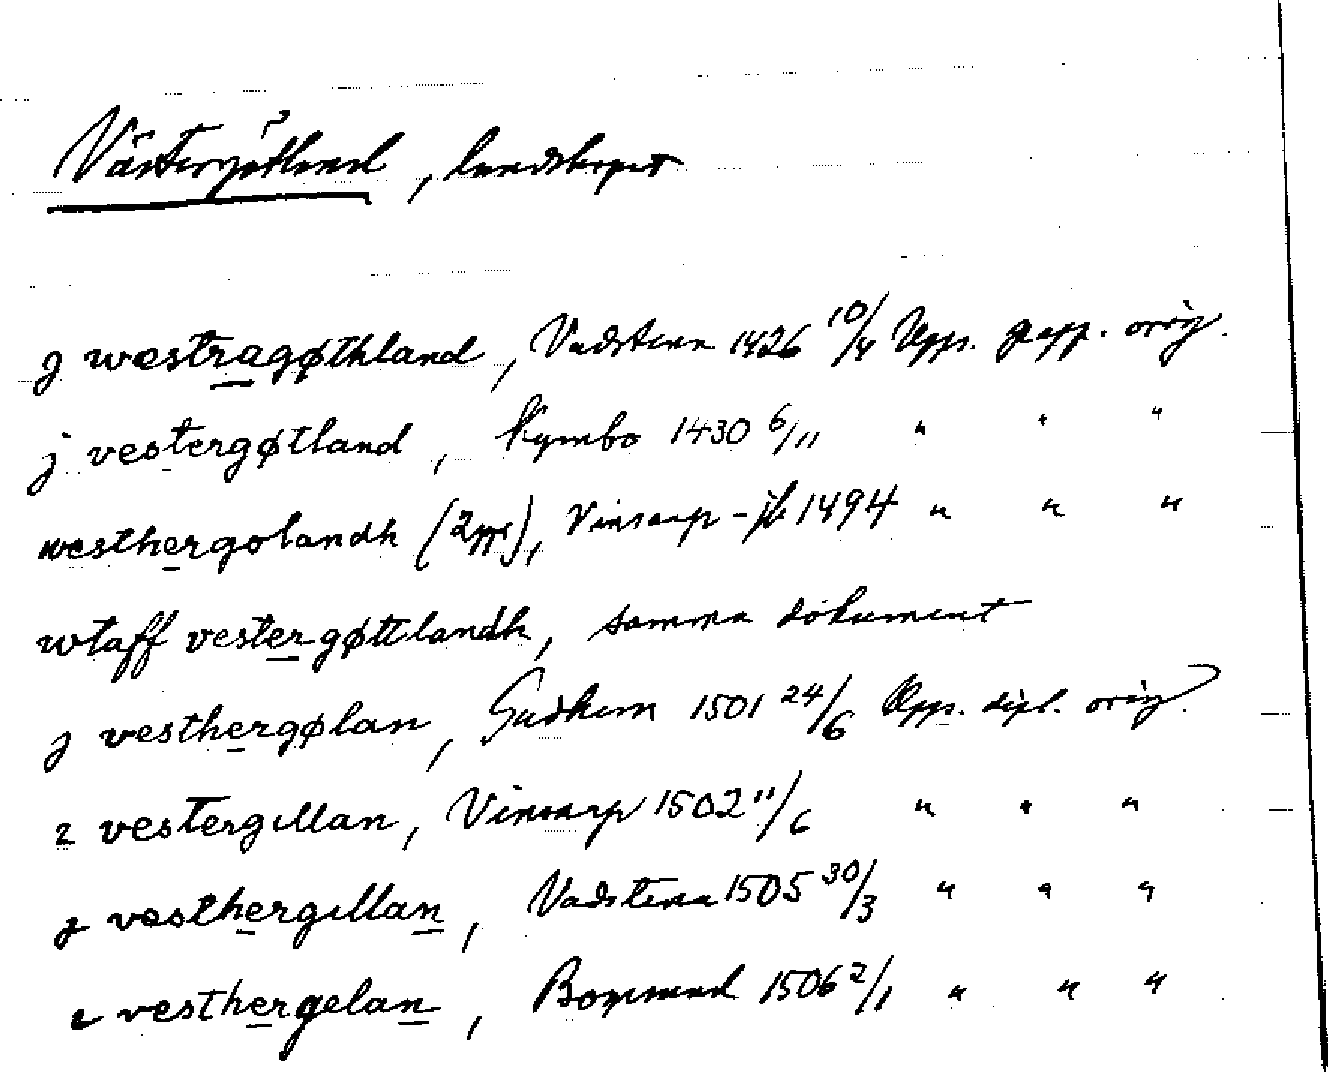 Västergötland, landskapet
j westragøthland, Vadstena 1426 10/4 Upps. papp. orig.
j vestergøtland, Kymbo 1430 6/11 " " "
westhergolandh (2ggr), Vinsarp-jb 1494 " " "
wtaff vestergøttlandh, samma dokument
j vesthergølan, Gudhem 1501 24/6 Upps. dipl. orig.
i vestergillan, Vinsarp 1502 11/6 " " "
j vesthergillan, Vadstena 1505 30/3 " " "
i vesthergelan, 1506 2/1 " " "